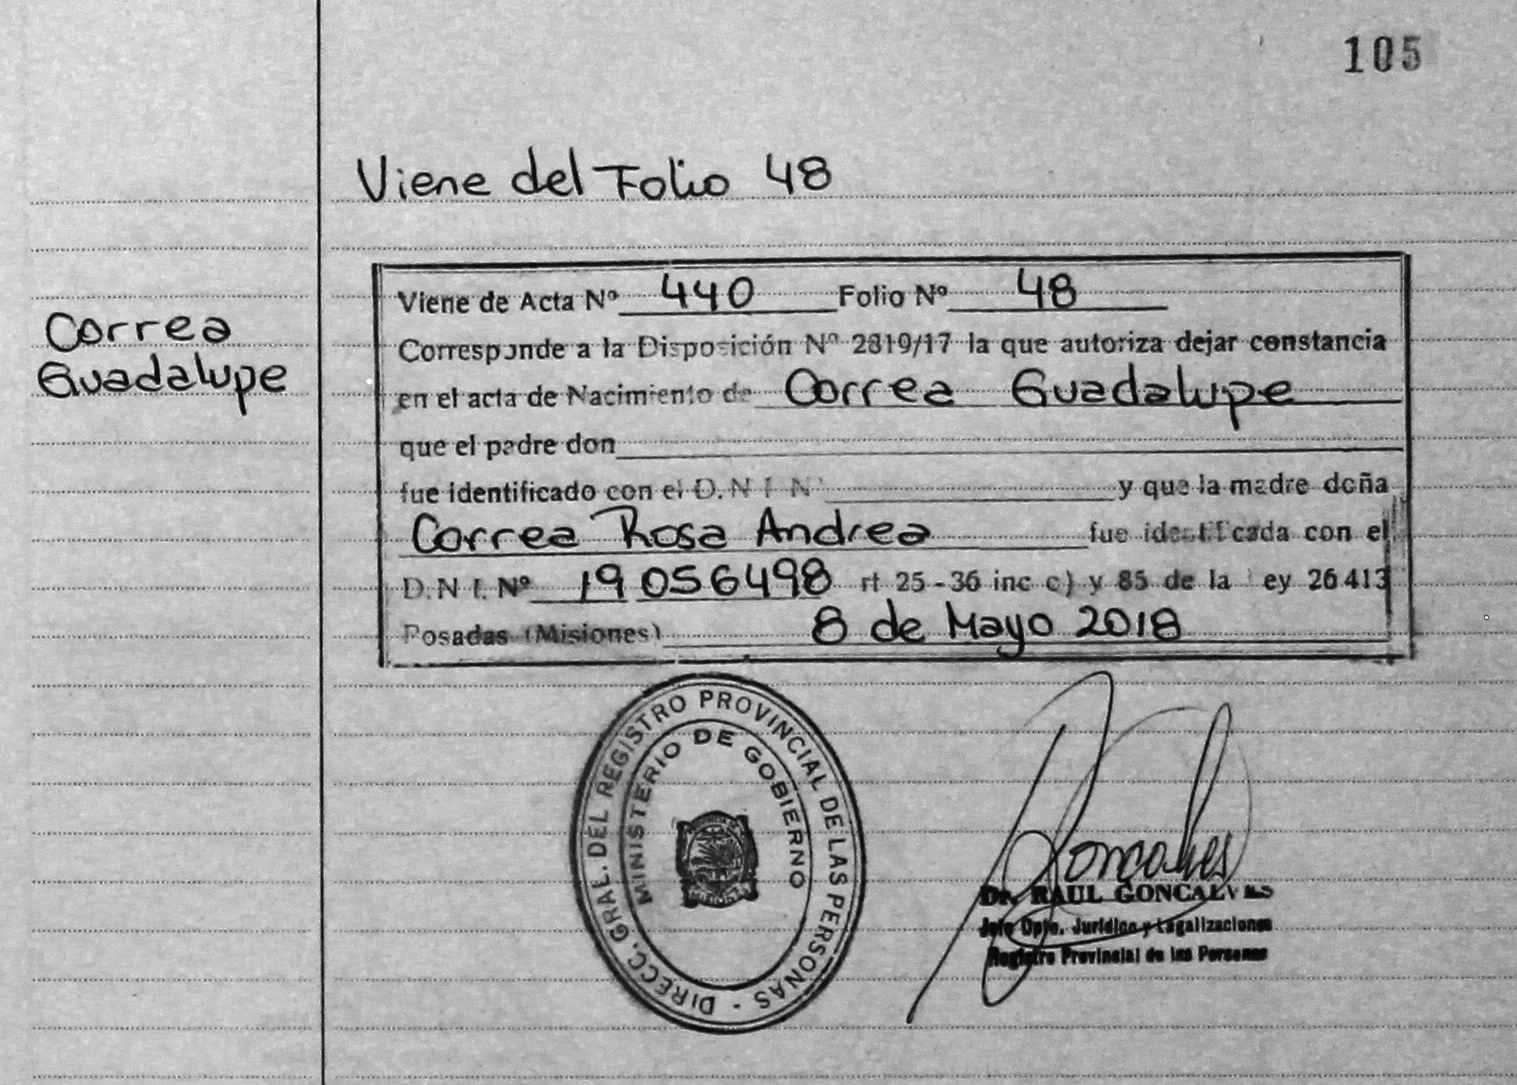 105
Viene del Folio 48
Correa
Guadalupe
Viene de Acta Nº 440 Folio Nº 48
Corresponde a la Disposición Nº 2819/17 la que autoriza dejar constancia
en el acta de Nacimiento de Correa Guadalupe
que el padre don
fue identificado con el D.N.I. Nº y que la madre doña
Correa Rosa Andrea fue identificada con el
D.N.I. Nº 19 056498 rt 25-36 inc c) y 85 de la ey 26 413
Posadas (Misiones) 8 de Mayo 2018
DIRECC. GRAL. DEL REGISTRO PROVINCIAL DE LAS PERSONAS -
MINISTERIO DE GOBIERNO
Goncalves
Dr. RAUL GONCALVES
Jefe Dpto. Jurídico y Legalizaciones
Registro Provincial de las Personas